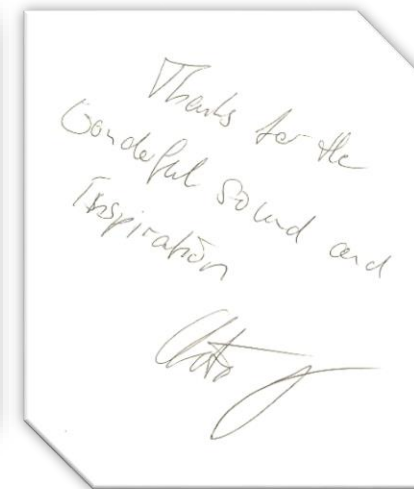 Thanks for the
Wonderful Sound and
Inspiration